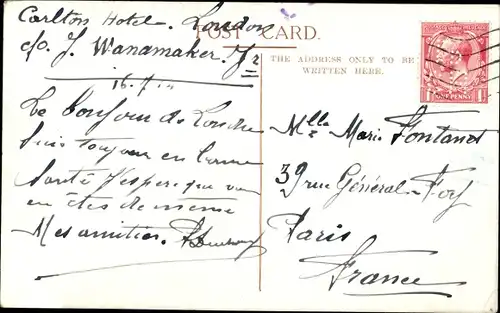 Carlton Hotel. London
c/o J. Wanamaker. J
POST CARD.
THE ADDRESS ONLY TO BE
WRITTEN HERE.
Le bonjour de Londres
suis toujours en bonne
santé J'espère que vous
en êtes de même
Mes amitiés.
Mlle Marie Fontanet
39 rue Général-Foy
Paris
France